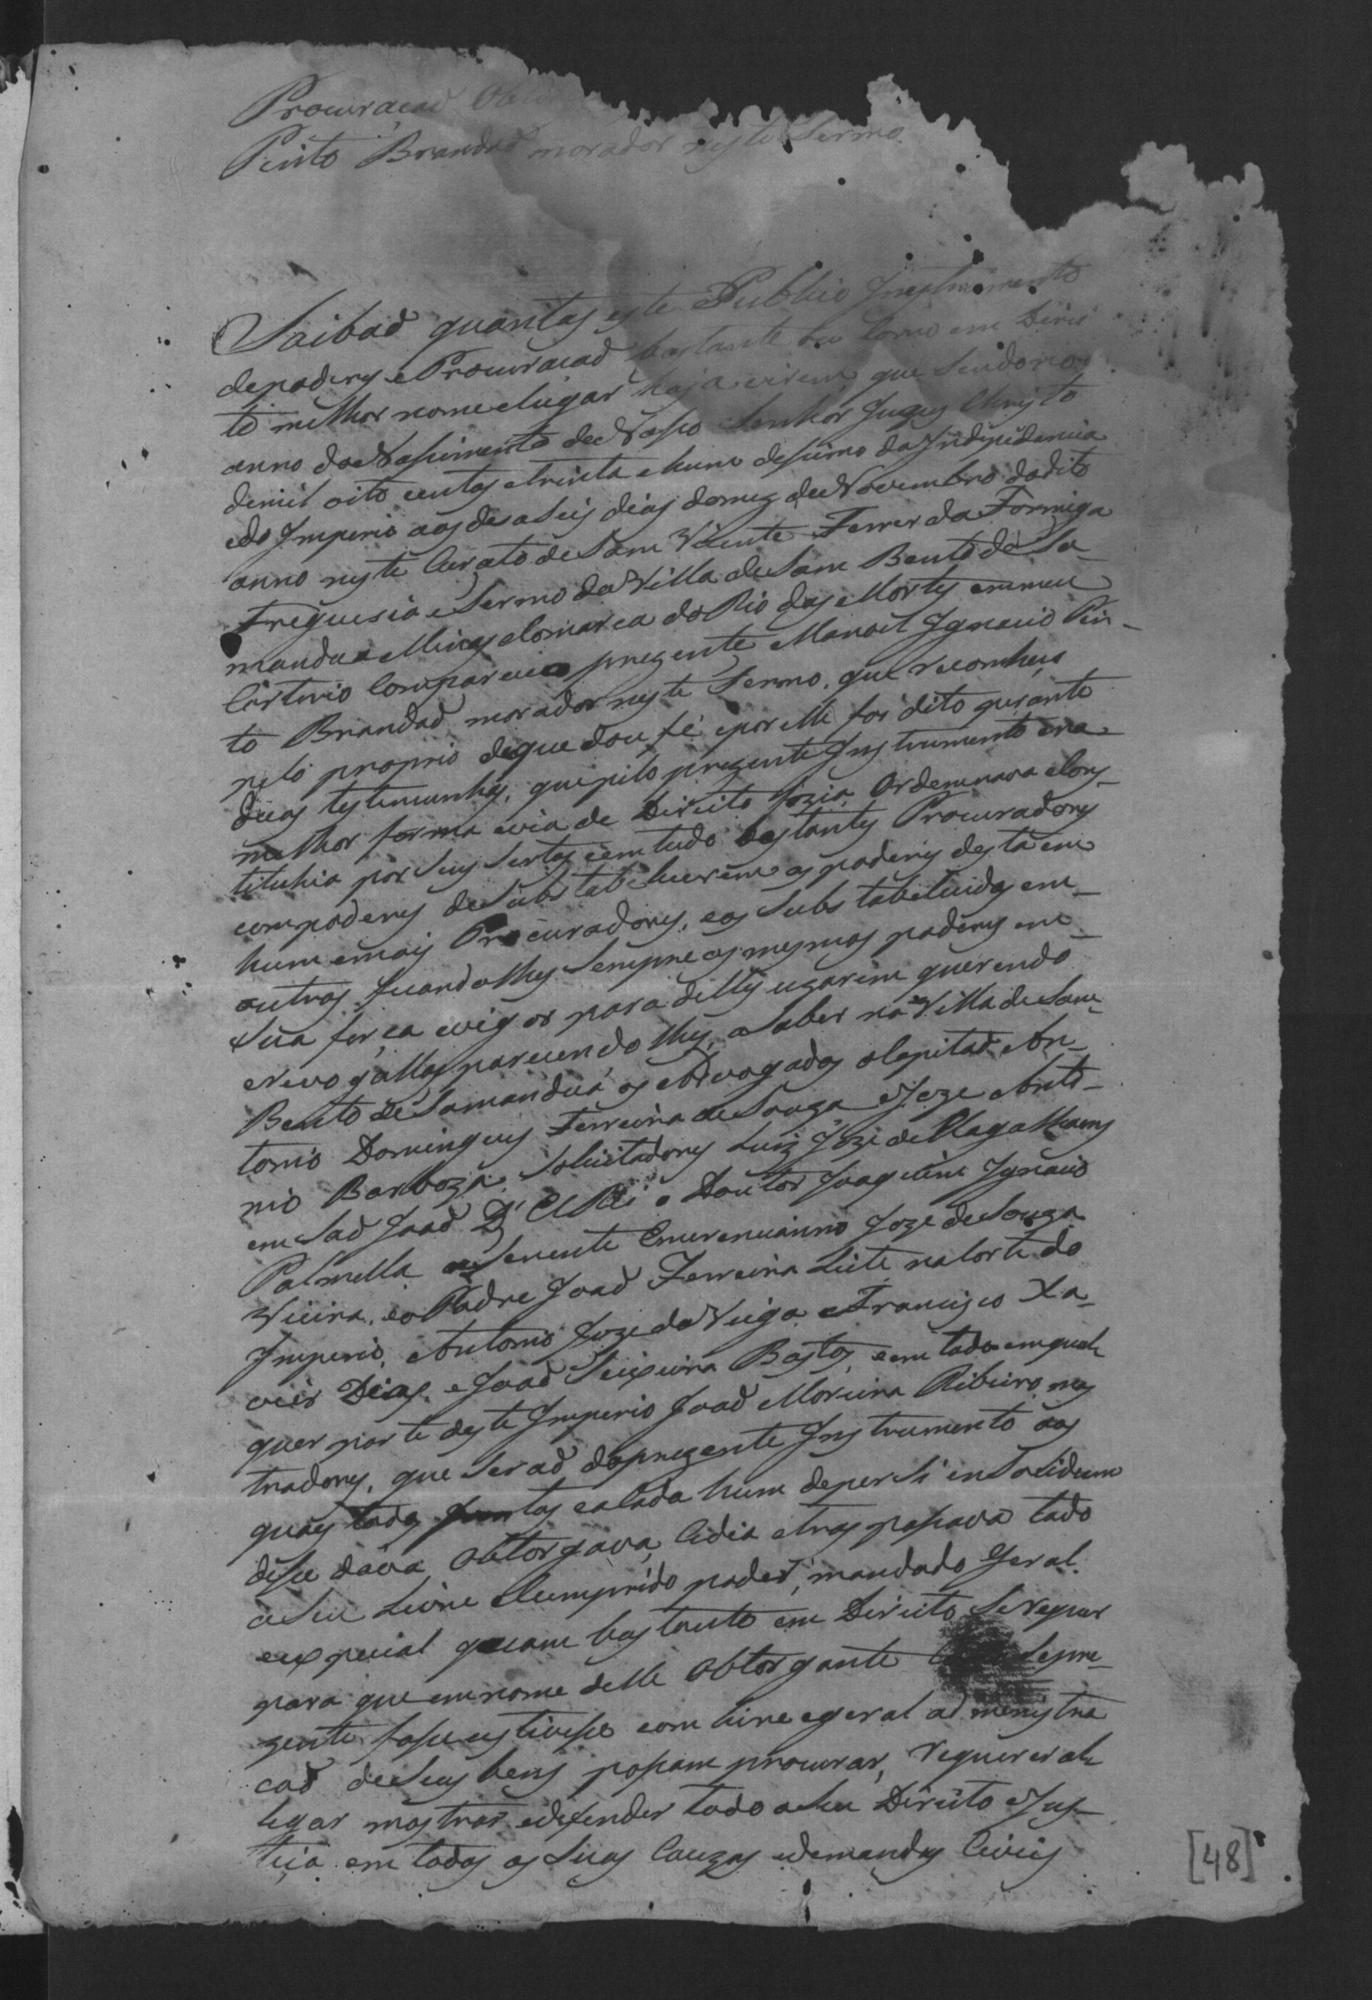 Procuraçaõ Obtor
Pinto Brandaõ morador neste Termo
Saibaõ quantos este Publico Instrumento
de poderes e Procuraçaõ bastante ou como em Direi
to milhor nome e lugar haja virem, que sendo no
anno do Nascimento de Nosso Senhor Jezus Christo
de mil oito centos e trinta e hum decimo da Independencia
e do Imperio aos desaseis dias do mez de Novembro do dito
anno neste Curato de Sam Vicente Ferrer da Formiga
Freguesia e Termo da Villa de Sam Bento do Ta-
mandua Minas e Comarca do Rio das Mortes em meu
Cartorio Compareceo prezente Manoel Ignacio Pin-
to Brandaõ morador neste Termo, que reconheço
pelo proprio de que dou fé e por elle foi dito perante
duas testemunhas, que pelo prezente Instrumento e na
milhor forma e via de Direito fazia Ordennava e Cons-
tituhia por seus sertos e em tudo bastantes Procuradores
com poderes de Substabelecerem os poderes desta em
hum e mais Procuradores, e os Substabelecidos em
outros ficando lhes sempre os mesmos poderes em
sua força e vigor para delles uzarem querendo
e revogallos parecendo lhes, a saber na Villa de Sam
Bento de Tamanduá os Advogados o Capitaõ An-
tonio Domingues Ferreira de Souza e Joze Anto-
nio Barboza, Solicitadores Luiz Joze de Magalhaens
em Saõ Joaõ D' El Rei o Doutor Joaquim Ignacio
Palmella o Tenente Emerencianno Joze de Souza
Vieira, e o Padre Joaõ Ferreira Leite na Corte do
Imperio, Antonio Joze da Veiga e Francisco Xa-
vier Dias, e Joaõ Teixeira Bastos, e em toda e em qual
quer parte deste Imperio Joaõ Moreira Ribeiro, mos
tradores, que seraõ do prezente Instrumento aos
quaes todos juntos e a Cada hum de per si in Solidum
disse dava Obtorgava, Cedia e traspassava todo
o seu Livre e Cumprido poder, mandado Geral
e expecial quam bastante em Direito se requer
para que em nome delle Obtorgante se pre-
zente fosse estivesse com livre e geral administra
çaõ de seus bens possam procurar, requerer al
legar mostrar e defender todo o seu Direito e Jus-
tiça em todas as suas Cauzas e demandas Civeis
[48]